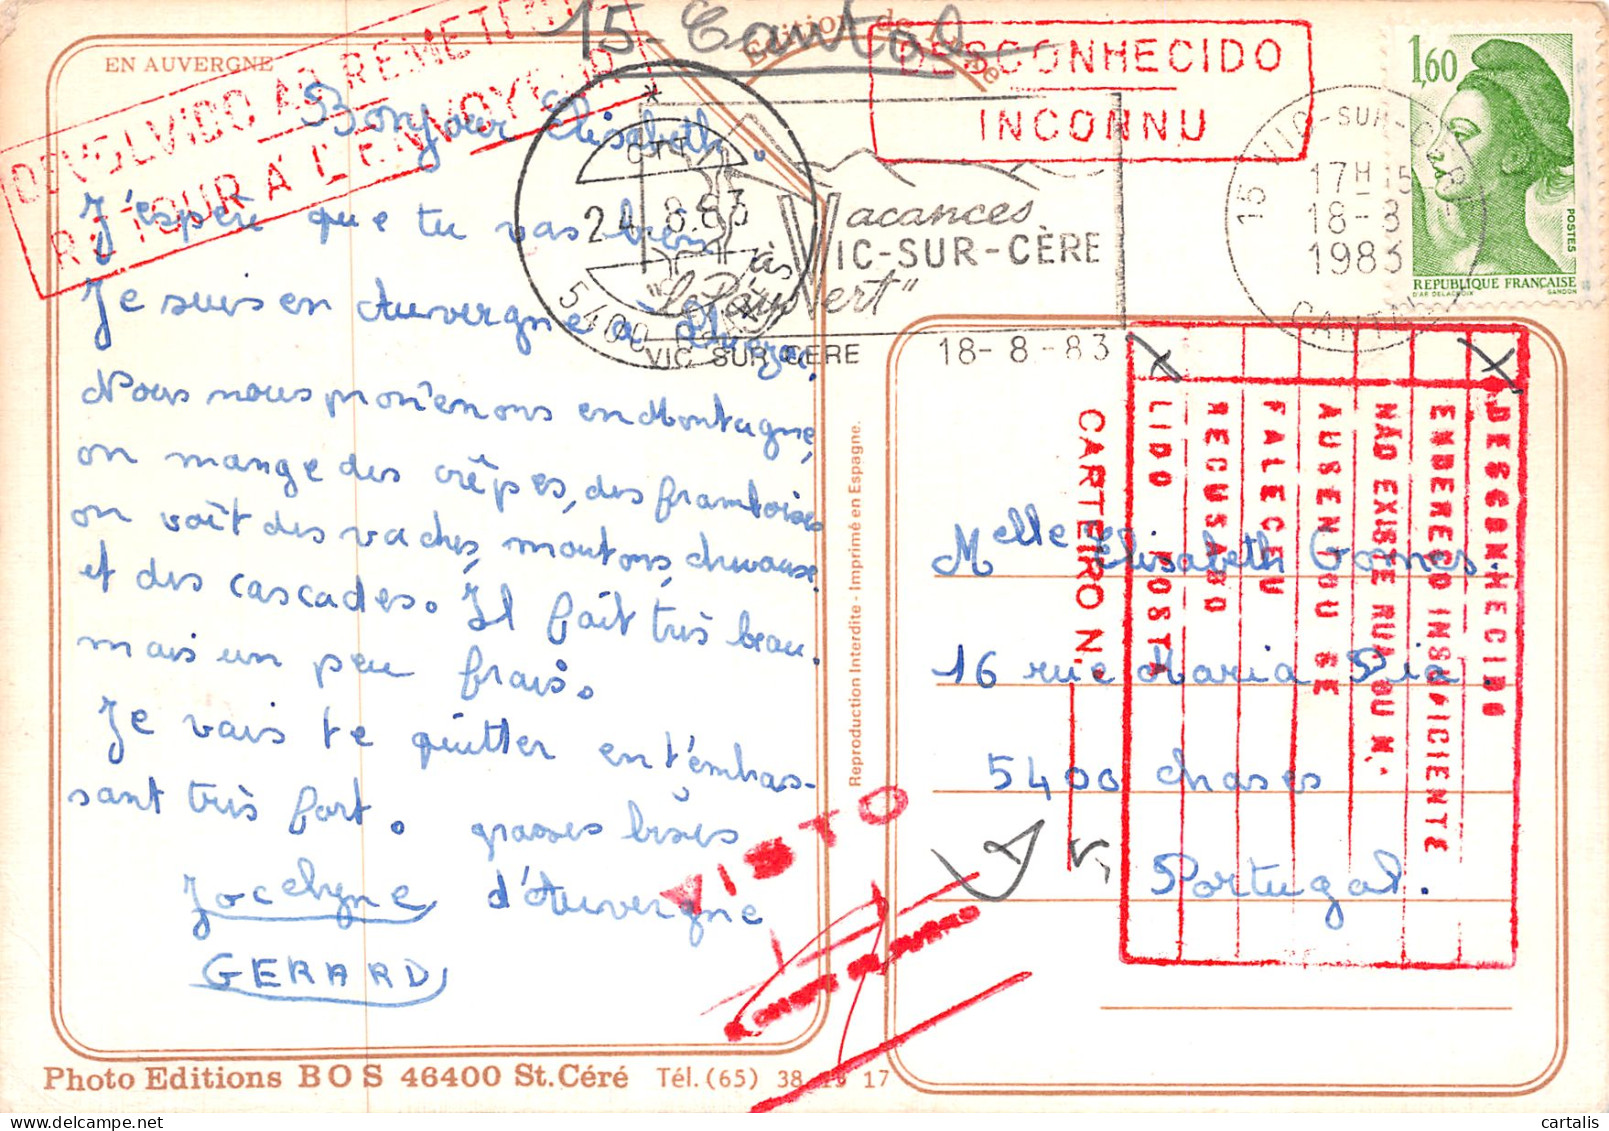 EN AUVERGNE
15 - Cantal
DEVOLVIDO AO REMETENTE
RETOUR A L'ENVOYEUR
Bonjour Elisabeth.
J'espère que tu vas bien
Je suis en Auvergne à
Nous nous promenons en Montagne,
on mange des crêpes, des framboises
on voit des vaches, moutons, chevaux.
et des cascades. Il fait très beau.
mais un peu frais.
Je vais te quitter en t'embras-
sant très fort. grosses bises
Jocelyne d'Auvergne
GERARD
Photo Editions BOS 46400 St.Céré Tél. (65) 38 17
Reproduction Interdite - Imprimé en Espagne.
Edition de
DESCONHECIDO
INCONNU
CTT
24.8.83
5400
Vacances
à
VIC-SUR-CÈRE
VIC SUR CERE
18-8-83
15 VIC-SUR-CERE
17H15
18-8
1983
CANTAL
1,60
POSTES
REPUBLIQUE FRANÇAISE
D'AP. DELACROIX GANDON
DESCONHECIDO
ENDEREÇO INSUFICIENTE
NÃO EXISTE RUA OU N.
AUSENTOU SE
FALECEU
RECUSADO
LIDO POSTA
CARTEIRO N.
Melle Elisabeth Gomes
16 rue Maria Pia.
5400 chaves
Portugal.
VISTO